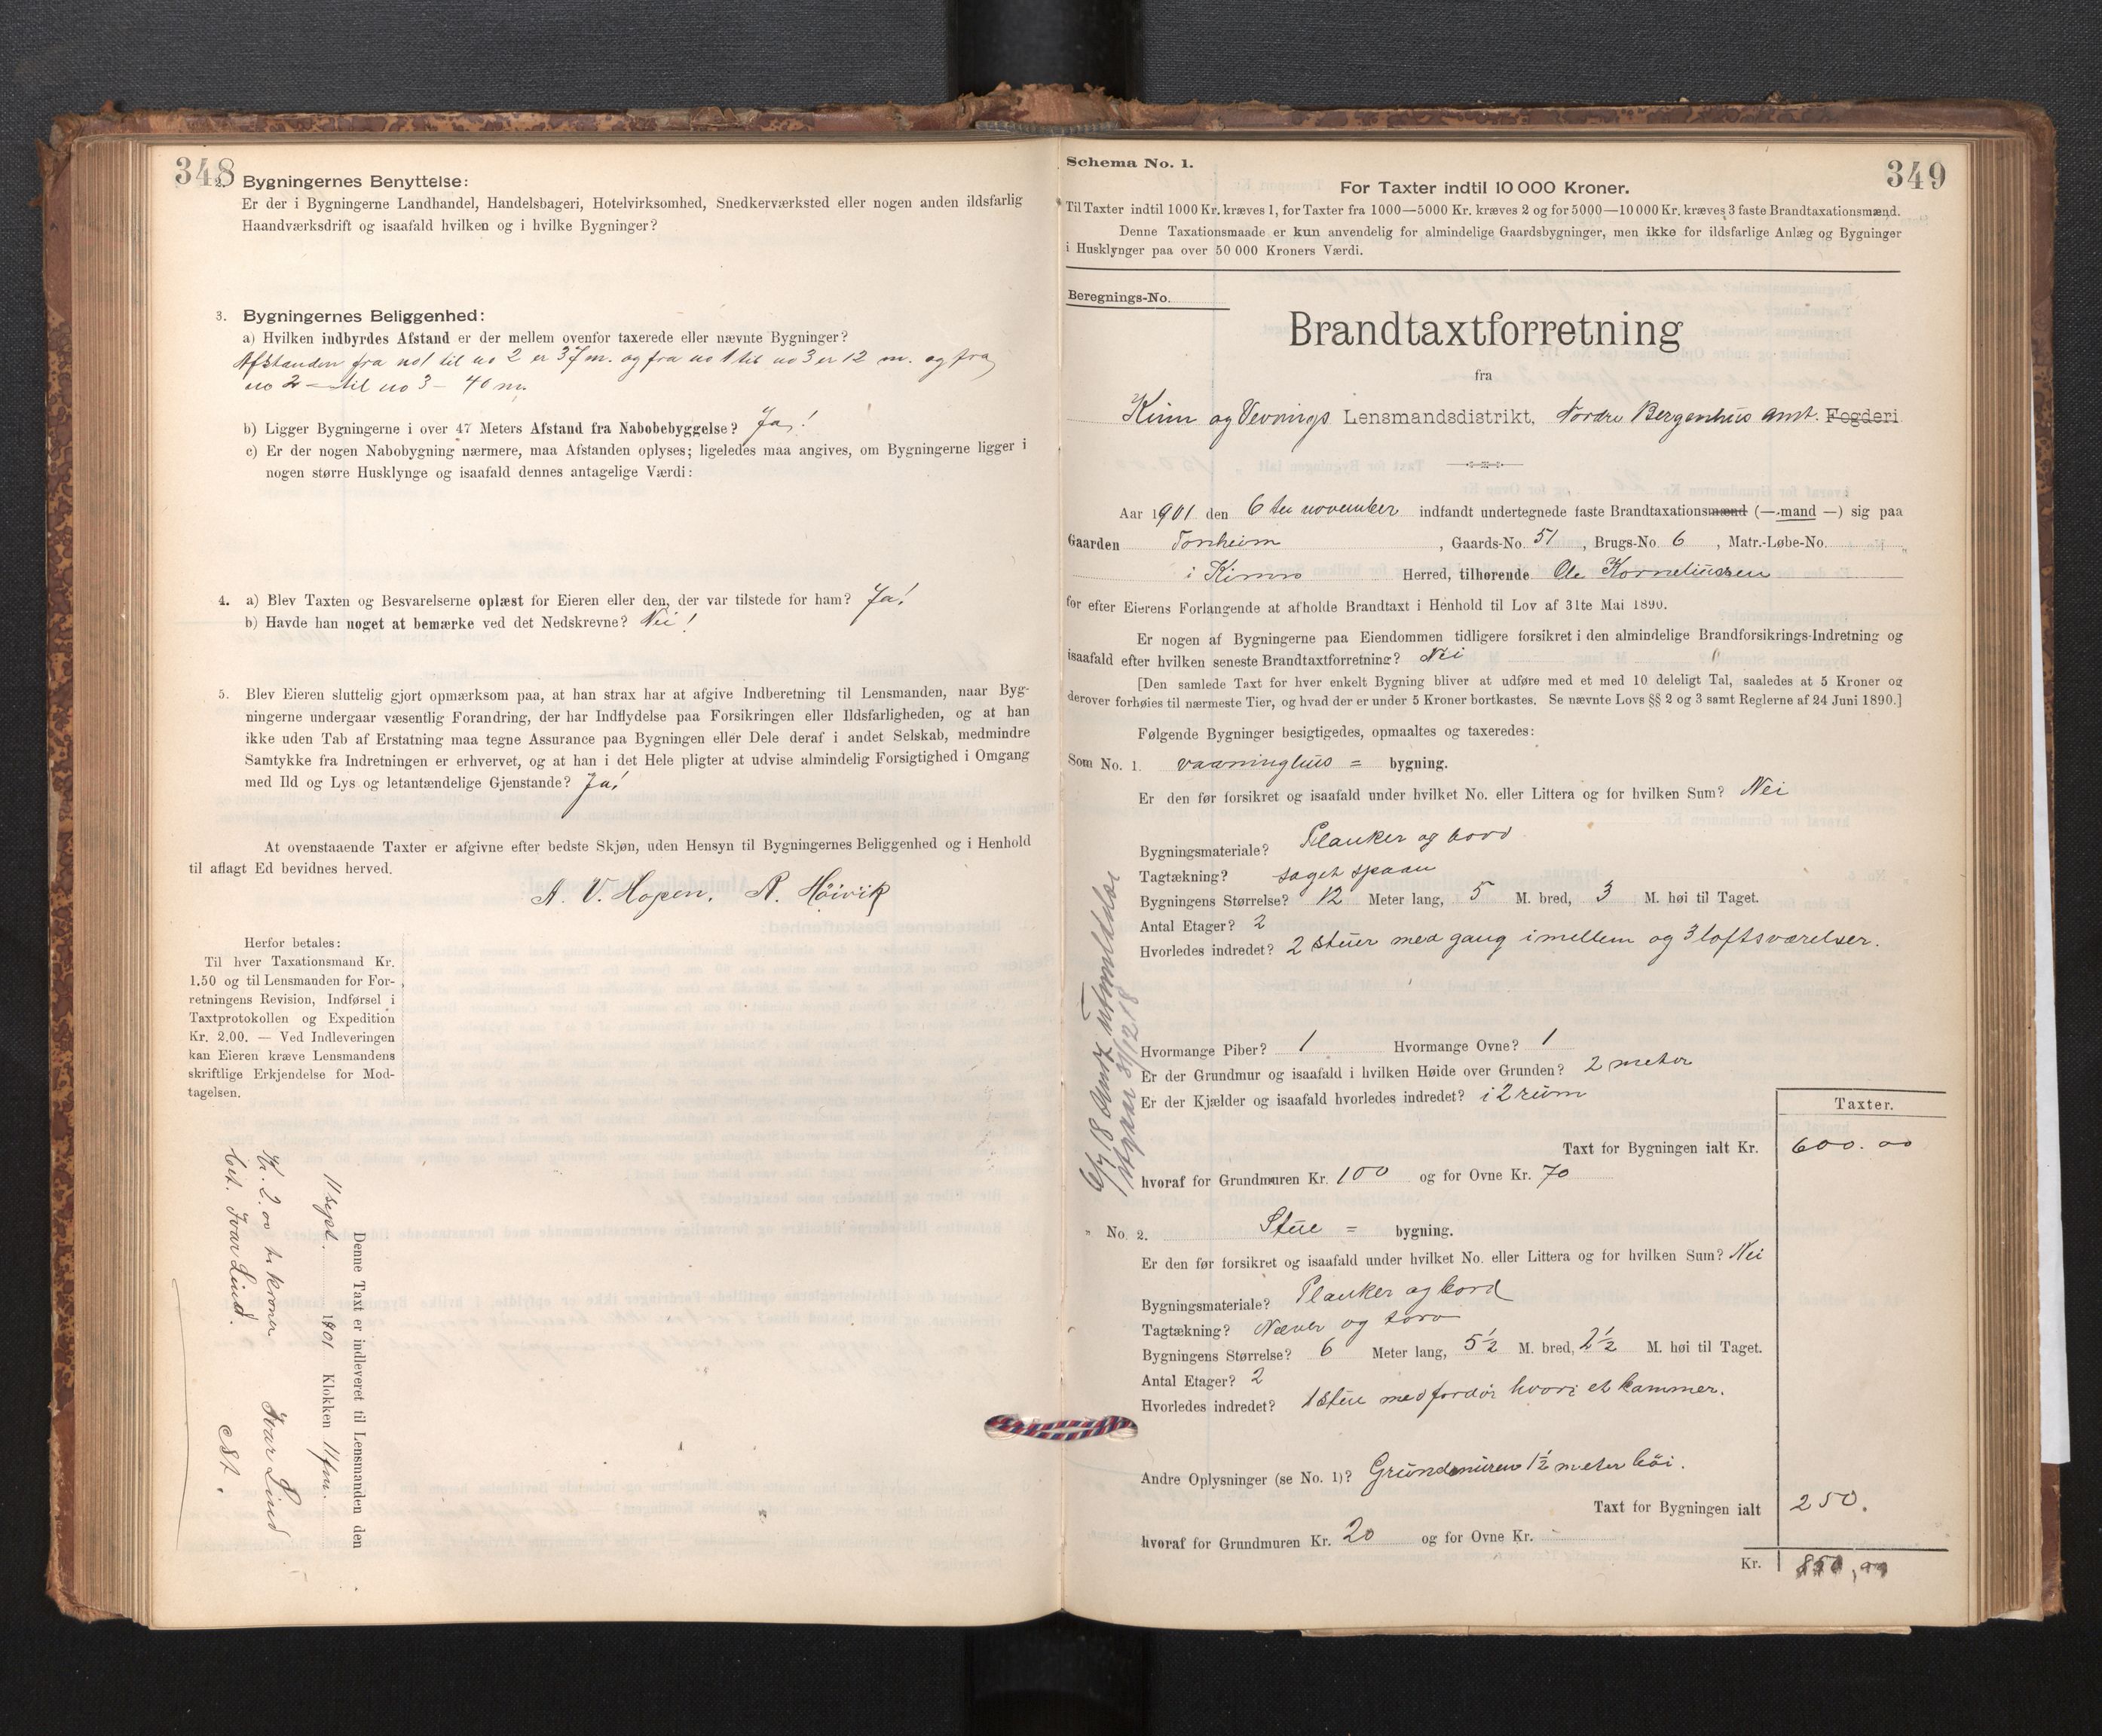 348
2. Bygningernes Benyttelse:
Er der i Bygningerne Landhandel, Handelsbageri, Hotelvirksomhed, Snedkerværksted eller nogen anden ildsfarlig
Haandværksdrift og isaafald hvilken og i hvilke Bygninger?
3. Bygningernes Beliggenhed:
a) Hvilken indbyrdes Afstand er der mellem ovenfor taxerede eller nævnte Bygninger?
Afstanden fra no 1 til no 2 er 37 m. og fra no 1 til no 3 er 12 m. og fra
no 2 = til no 3 – 40 m.
b) Ligger Bygningerne i over 47 Meters Afstand fra Nabobebyggelse? Ja!
c) Er der nogen Nabobygning nærmere, maa Afstanden oplyses; ligeledes maa angives, om Bygningerne ligger i
nogen større Husklynge og isaafald dennes antagelige Værdi:
4. a) Blev Taxten og Besvarelserne oplæst for Eieren eller den, der var tilstede for ham? Ja!
b) Havde han noget at bemærke ved det Nedskrevne? Nei!
5. Blev Eieren sluttelig gjort opmærksom paa, at han strax har at afgive Indberetning til Lensmanden, naar Byg-
ningerne undergaar væsentlig Forandring, der har Indflydelse paa Forsikringen eller Ildsfarligheden, og at han
ikke uden Tab af Erstatning maa tegne Assurance paa Bygningen eller Dele deraf i andet Selskab, medmindre
Samtykke fra Indretningen er erhvervet, og at han i det Hele pligter at udvise almindelig Forsigtighed i Omgang
med Ild og Lys og letantændelige Gjenstande? Ja!
At ovenstaaende Taxter er afgivne efter bedste Skjøn, uden Hensyn til Bygningernes Beliggenhed og i Henhold
til aflagt Ed bevidnes herved.
A. V. Hopen. R. Høivik
Herfor betales:
Til hver Taxationsmand Kr.
1.50 og til Lensmanden for For-
retningens Revision, Indførsel i
Taxtprotokollen og Expedition
Kr. 2.00. — Ved Indleveringen
kan Eieren kræve Lensmandens
skriftlige Erkjendelse for Mod-
tagelsen.
Denne Taxt er indleveret til Lensmanden den
11 sept. 1901 Klokken 11 fm.
Kr. 2.00 to kroner Ivar Lind
bet. Ivar Lind. St.
Schema No. 1.
349
For Taxter indtil 10 000 Kroner.
Til Taxter indtil 1000 Kr. kræves 1, for Taxter fra 1000—5000 Kr. kræves 2 og for 5000—10 000 Kr. kræves 3 faste Brandtaxationsmænd.
Denne Taxationsmaade er kun anvendelig for almindelige Gaardsbygninger, men ikke for ildsfarlige Anlæg og Bygninger
i Husklynger paa over 50 000 Kroners Værdi.
Beregnings-No.
Brandtaxtforretning
fra
Kinn og Vevrings Lensmandsdistrikt, Nordre Bergenhus amt. Fogderi
Aar 1901 den 6 te november indfandt undertegnede faste Brandtaxationsmænd (—mand —) sig paa
Gaarden Tonheim, Gaards-No. 51, Brugs-No. 6, Matr.-Løbe-No.
i Kinns Herred, tilhørende Ole Korneliussen
for efter Eierens Forlangende at afholde Brandtaxt i Henhold til Lov af 31te Mai 1890.
Er nogen af Bygningerne paa Eiendommen tidligere forsikret i den almindelige Brandforsikrings-Indretning og
isaafald efter hvilken seneste Brandtaxtforretning? Nei
[Den samlede Taxt for hver enkelt Bygning bliver at udføre med et med 10 deleligt Tal, saaledes at 5 Kroner og
derover forhøies til nærmeste Tier, og hvad der er under 5 Kroner bortkastes. Se nævnte Lovs §§ 2 og 3 samt Reglerne af 24 Juni 1890.]
Følgende Bygninger besigtigedes, opmaaltes og taxeredes:
Som No. 1. vaaninghus = bygning.
Er den før forsikret og isaafald under hvilket No. eller Littera og for hvilken Sum? Nei
Bygningsmateriale? Planker og bord
Tagtækning? saget spaan
Bygningens Størrelse? 12 Meter lang, 5 M. bred, 3 M. høi til Taget.
Antal Etager? 2
Hvorledes indredet? 2 stuer med gang imellem og 3 loftsværelser.
Hvormange Piber? 1 Hvormange Ovne? 1
Er der Grundmur og isaafald i hvilken Høide over Grunden? 2 meter
Er der Kjælder og isaafald hvorledes indredet? i 2 rum
Taxter.
Taxt for Bygningen ialt Kr. 600.00
hvoraf for Grundmuren Kr. 100 og for Ovne Kr. 70
6/7 18
utgaar 31/12 18
" No. 2. Stue = bygning.
Er den før forsikret og isaafald under hvilket No. eller Littera og for hvilken Sum? Nei
Bygningsmateriale? Planker og bord
Tagtækning? Næver og torv
Bygningens Størrelse? 6 Meter lang, 5 1/2 M. bred, 2 1/2 M. høi til Taget.
Antal Etager? 2
Hvorledes indredet? 1 stue med fordør hvori et kammer.
Andre Oplysninger (se No. 1)? Grundmuren 1 1/2 meter høi.
Taxt for Bygningen ialt 250.
hvoraf for Grundmuren Kr. 20 og for Ovne Kr.
Kr. 850,00